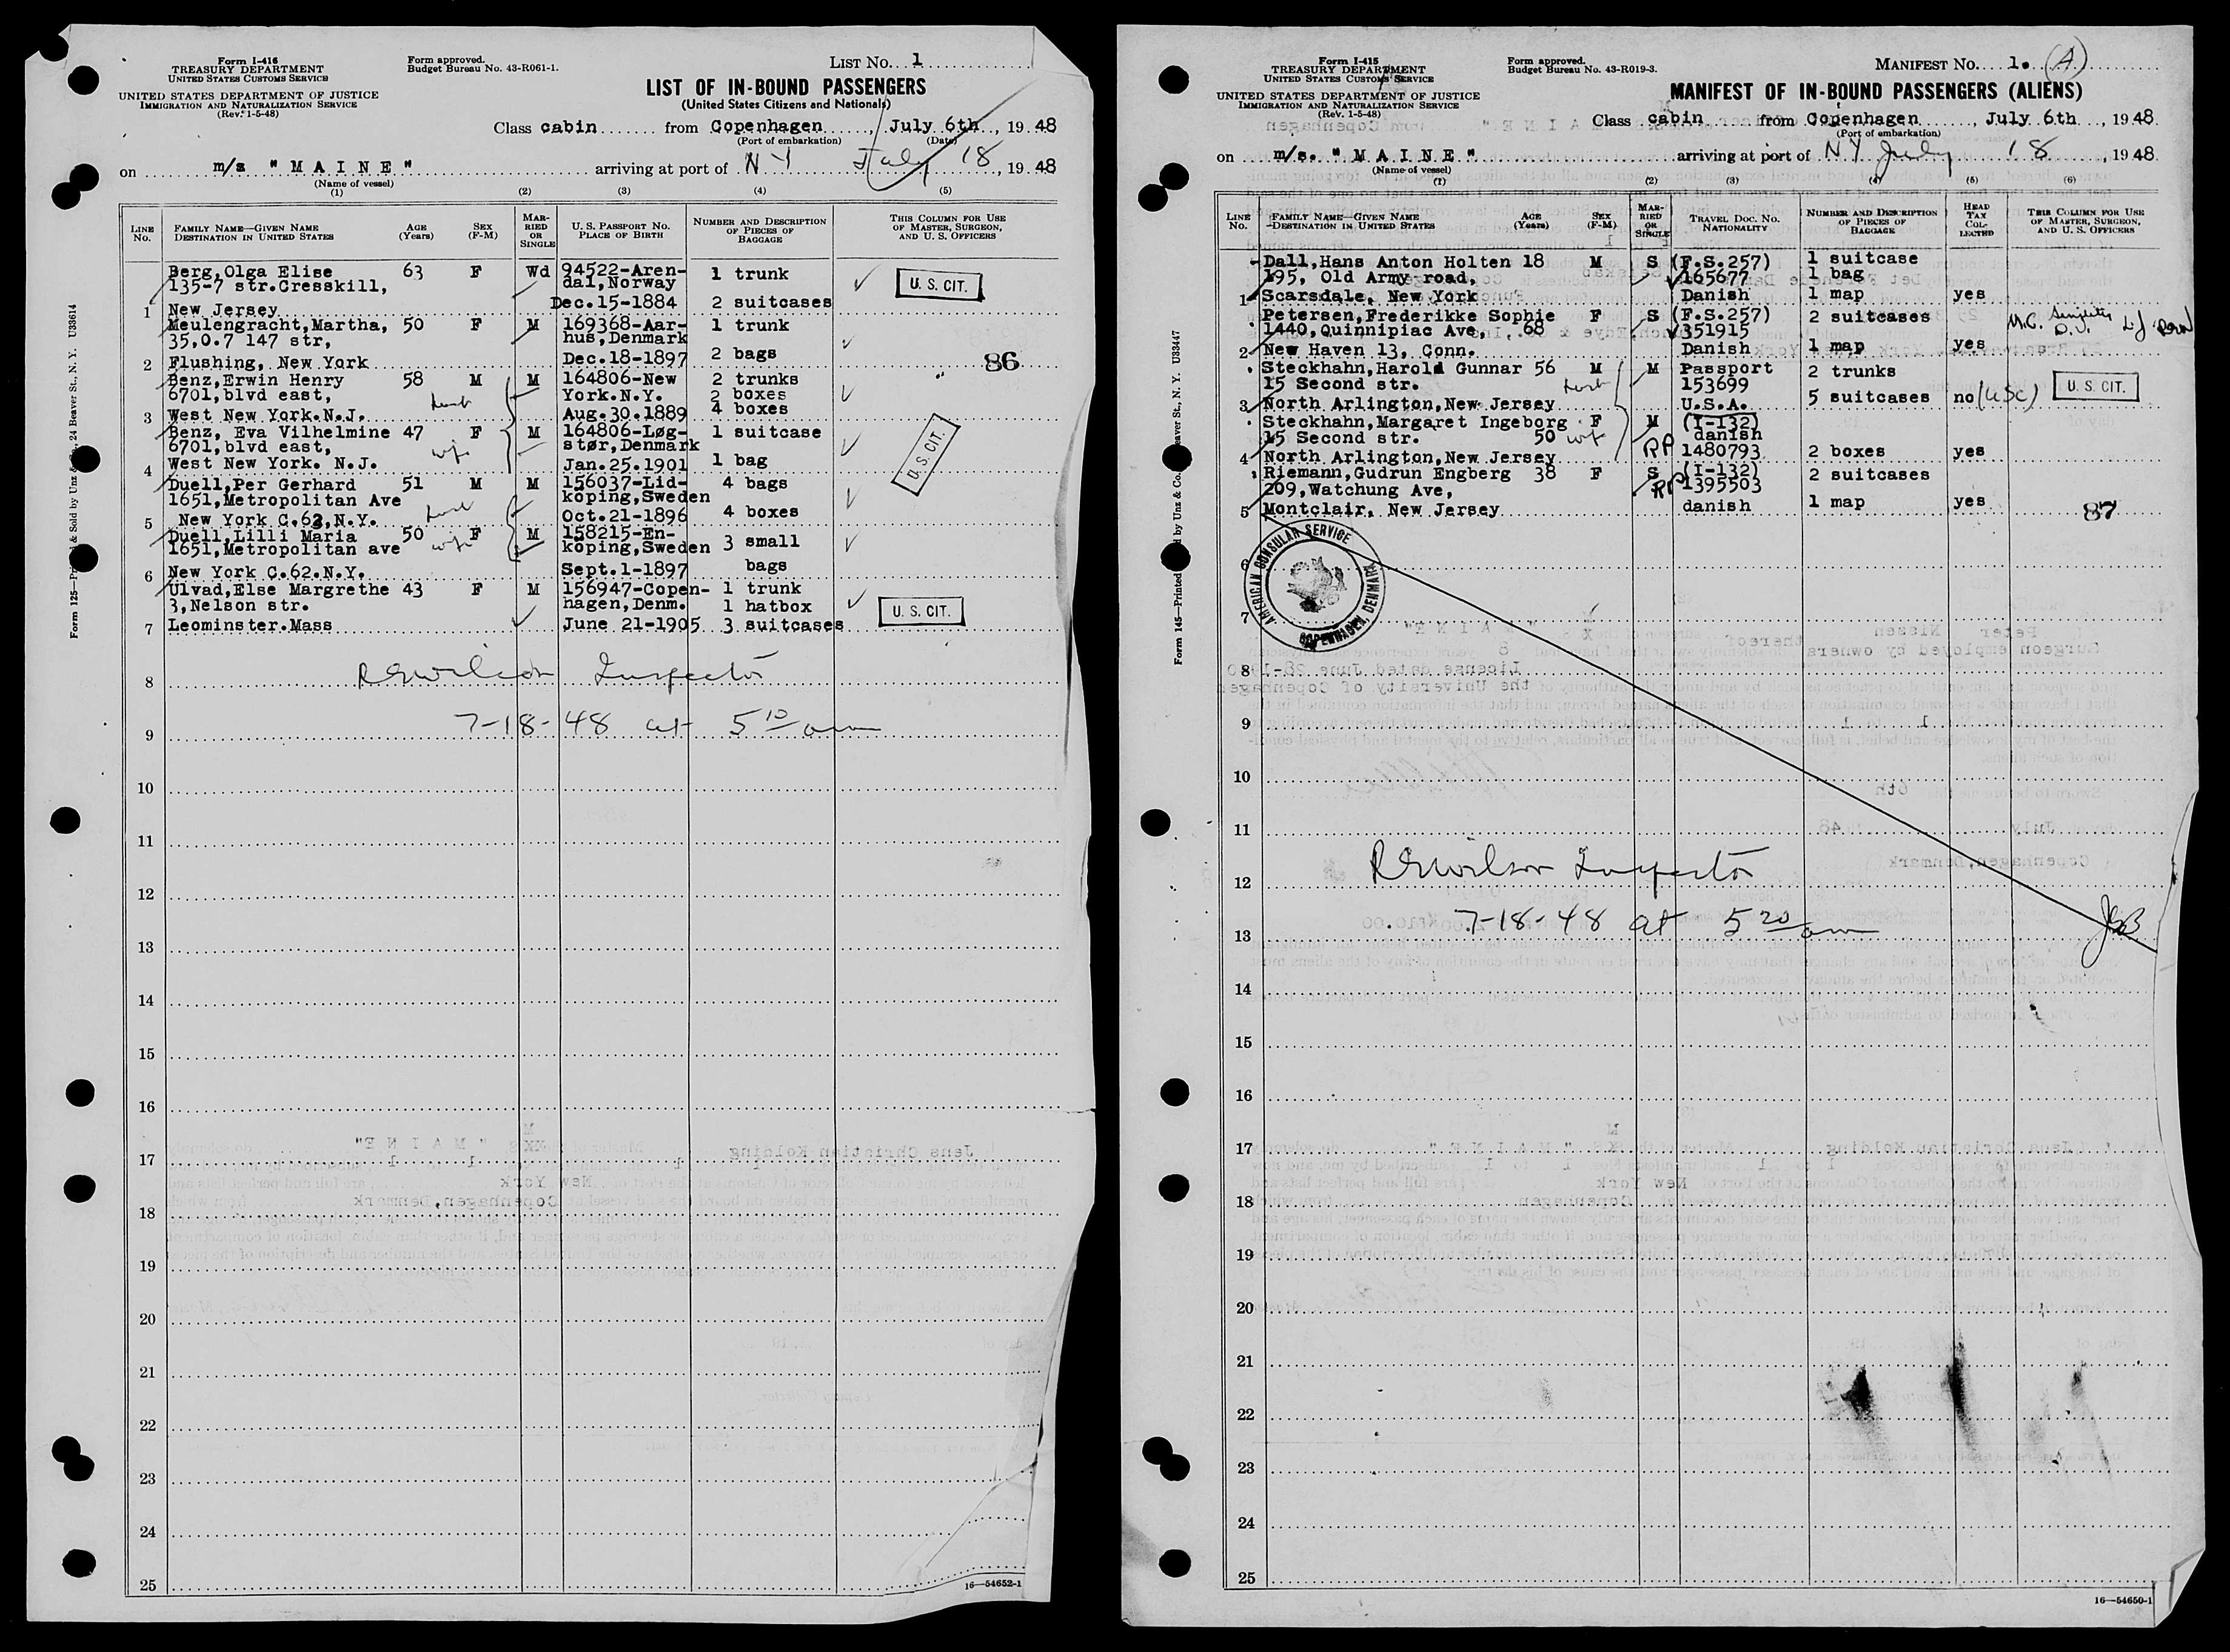 Form I-416
TREASURY DEPARTMENT
UNITED STATES CUSTOMS SERVICE
UNITED STATES DEPARTMENT OF JUSTICE
IMMIGRATION AND NATURALIZATION SERVICE
(Rev. 1-5-48)
Form approved.
Budget Bureau No. 43-R061-1.
LIST No. 1
LIST OF IN-BOUND PASSENGERS
(United States Citizens and Nationals)
Class cabin from Copenhagen, July 6th, 1948
(Port of embarkation) (Date)
on m/s "MAINE" arriving at port of N Y July 18, 1948
(Name of vessel)
(1) (2) (3) (4) (5)
LINE No. FAMILY NAME—GIVEN NAME DESTINATION IN UNITED STATES AGE (Years) SEX (F-M) MARRIED OR SINGLE U. S. PASSPORT NO. PLACE OF BIRTH NUMBER AND DESCRIPTION OF PIECES OF BAGGAGE THIS COLUMN FOR USE OF MASTER, SURGEON, AND U. S. OFFICERS
Berg,Olga Elise 63 F Wd 94522-Aren- 1 trunk
135-7 str.Cresskill, dal,Norway U. S. CIT.
1 New Jersey Dec.15-1884 2 suitcases
Meulengracht,Martha, 50 F M 169368-Aar- 1 trunk
35,0.7 147 str, hus,Denmark
2 Flushing, New York Dec.18-1897 2 bags 86
Benz,Erwin Henry 58 M M 164806-New 2 trunks
6701,blvd east, husb York.N.Y. 2 boxes
3 West New York.N.J. Aug.30.1889 4 boxes
Benz, Eva Vilhelmine 47 F M 164806-Løg- 1 suitcase
6701,blvd east, wife stør,Denmark U. S. CIT.
4 West New York. N.J. Jan.25.1901 1 bag
Duell,Per Gerhard 51 M M 156037-Lid- 4 bags
1651,Metropolitan Ave husb köping,Sweden
5 New York C.62,N.Y. Oct.21-1896 4 boxes
Duell,Lilli Maria 50 F M 158215-En-
1651,Metropolitan ave wife köping,Sweden 3 small
6 New York C.62.N.Y. Sept.1-1897 bags
Ulvad,Else Margrethe 43 F M 156947-Copen- 1 trunk
3,Nelson str. hagen,Denm. 1 hatbox U. S. CIT.
7 Leominster.Mass June 21-1905 3 suitcases
8 RG Wilson Inspector
9 7-18-48 at 5 10 am
10
11
12
13
14
15
16
17
18
19
20
21
22
23
24
25
16—54652-1
Form 125—Printed & Sold by Unz & Co., 24 Beaver St., N. Y. U33614
Form I-415
TREASURY DEPARTMENT
UNITED STATES CUSTOMS SERVICE
UNITED STATES DEPARTMENT OF JUSTICE
IMMIGRATION AND NATURALIZATION SERVICE
(Rev. 1-5-48)
Form approved.
Budget Bureau No. 43-R019-3.
MANIFEST No. 1. (A)
MANIFEST OF IN-BOUND PASSENGERS (ALIENS)
Class cabin from Copenhagen, July 6th, 1948
(Port of embarkation)
on m/s. "MAINE" arriving at port of N Y July 18, 1948
(Name of vessel)
(1) (2) (3) (4) (5) (6)
LINE No. FAMILY NAME—GIVEN NAME —DESTINATION IN UNITED STATES AGE (Years) SEX (F-M) MARRIED OR SINGLE TRAVEL DOC. NO. NATIONALITY NUMBER AND DESCRIPTION OF PIECES OF BAGGAGE HEAD TAX COLLECTED THIS COLUMN FOR USE OF MASTER, SURGEON, AND U. S. OFFICERS
Dall,Hans Anton Holten 18 M S (F.S.257) 1 suitcase
195, Old Army road, 165677 1 bag
1 Scarsdale, New York Danish 1 map yes
Petersen,Frederikke Sophie F S (F.S.257) 2 suitcases
1440,Quinnipiac Ave, 68 351915
2 New Haven 13, Conn. Danish 1 map yes
Steckhahn,Harold Gunnar 56 M M Passport 2 trunks
15 Second str. husb 153699
3 North Arlington,New Jersey U.S.A. 5 suitcases no (USC) U. S. CIT.
Steckhahn,Margaret Ingeborg F M (I-132)
15 Second str. 50 wife danish
4 North Arlington,New Jersey RP 1480793 2 boxes yes
Riemann,Gudrun Engberg 38 F S (I-132) 2 suitcases
209,Watchung Ave, RP 1395503
5 Montclair, New Jersey danish 1 map yes 87
AMERICAN CONSULAR SERVICE
COPENHAGEN, DENMARK
6
7
8
9
10
11
12 RG Wilson Inspector
13 7-18-48 at 5 20 am
14
15
16
17
18
19
20
21
22
23
24
25
16—54650-1